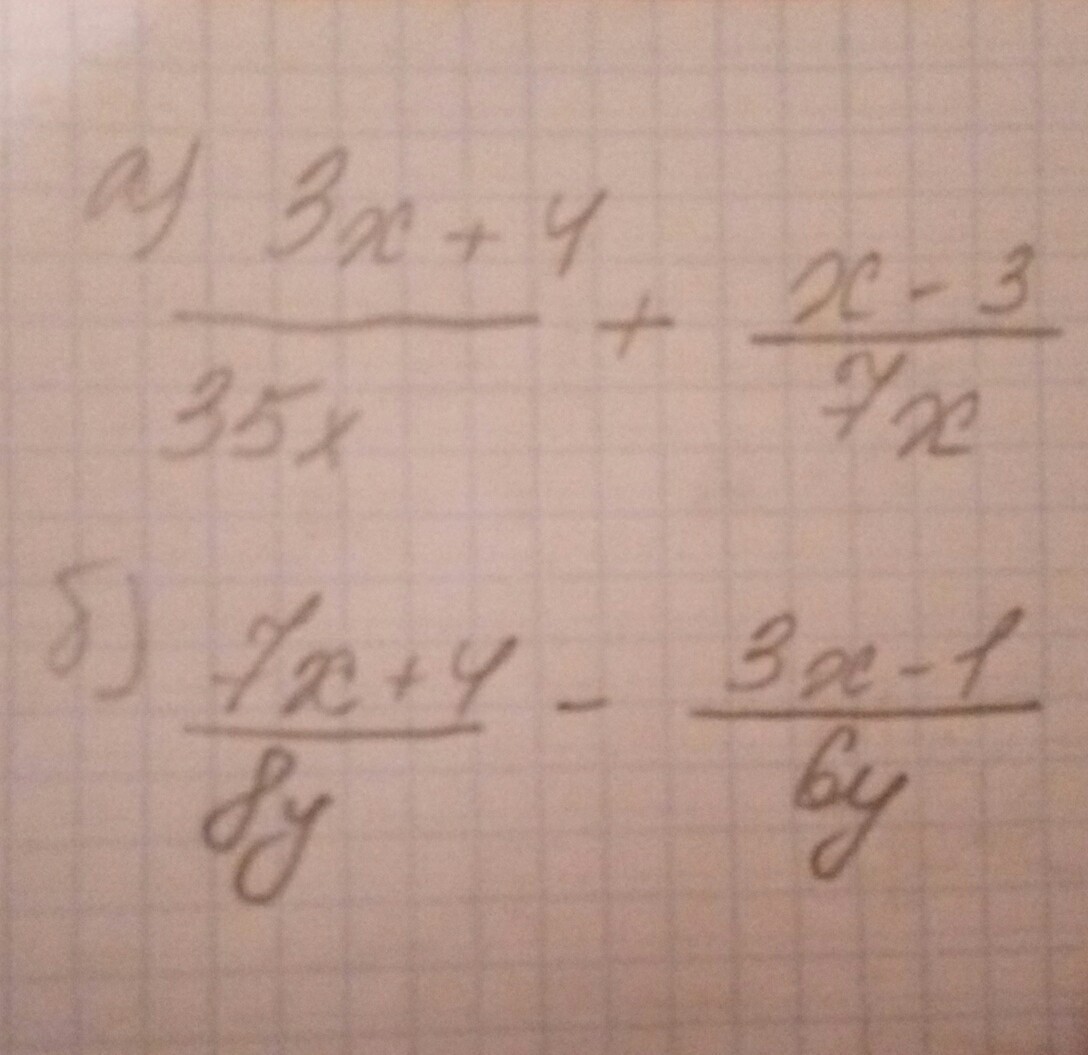 а) 3x + 4 / 35x + x - 3 / 7x
б) 7x + 4 / 8y - 3x - 1 / 6y